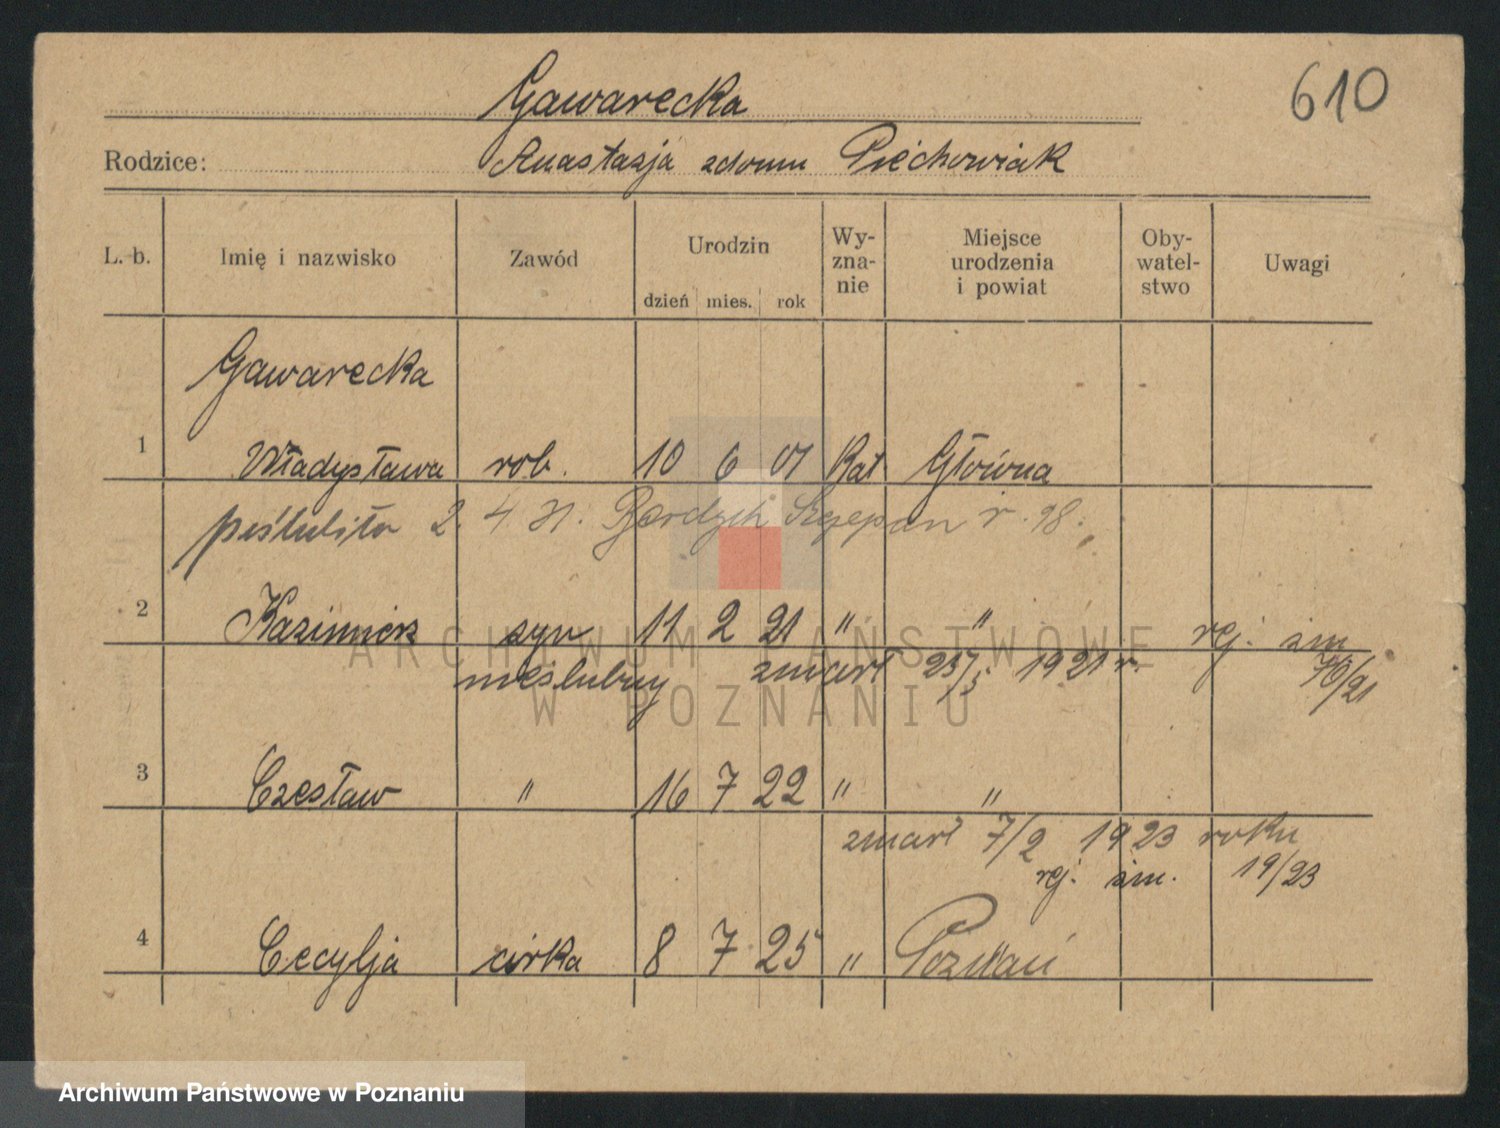 Gawarecka
610
Rodzice: Anastazja zdomu Piechowiak
L. b. Imię i nazwisko Zawód Urodzin dzień mies. rok Wy-zna-nie Miejsce urodzenia i powiat Oby-watel-stwo Uwagi
Gawarecka
1 Władysława rob. 10 6 01 Kat. Główna
poślubiła 2. 4 31. Szczepan r. 98.
2 Kazimierz syn 11 2 21 " " rej. śm
nieślubny zmarł 25/5 1921 r. 70/21
3 Czesław " 16 7 22 " "
zmarł 7/2 1923 roku
rej. śm. 19/23
4 Cecylja córka 8 7 25 " Poznań
ARCHIWUM PAŃSTWOWE
W POZNANIU
Archiwum Państwowe w Poznaniu